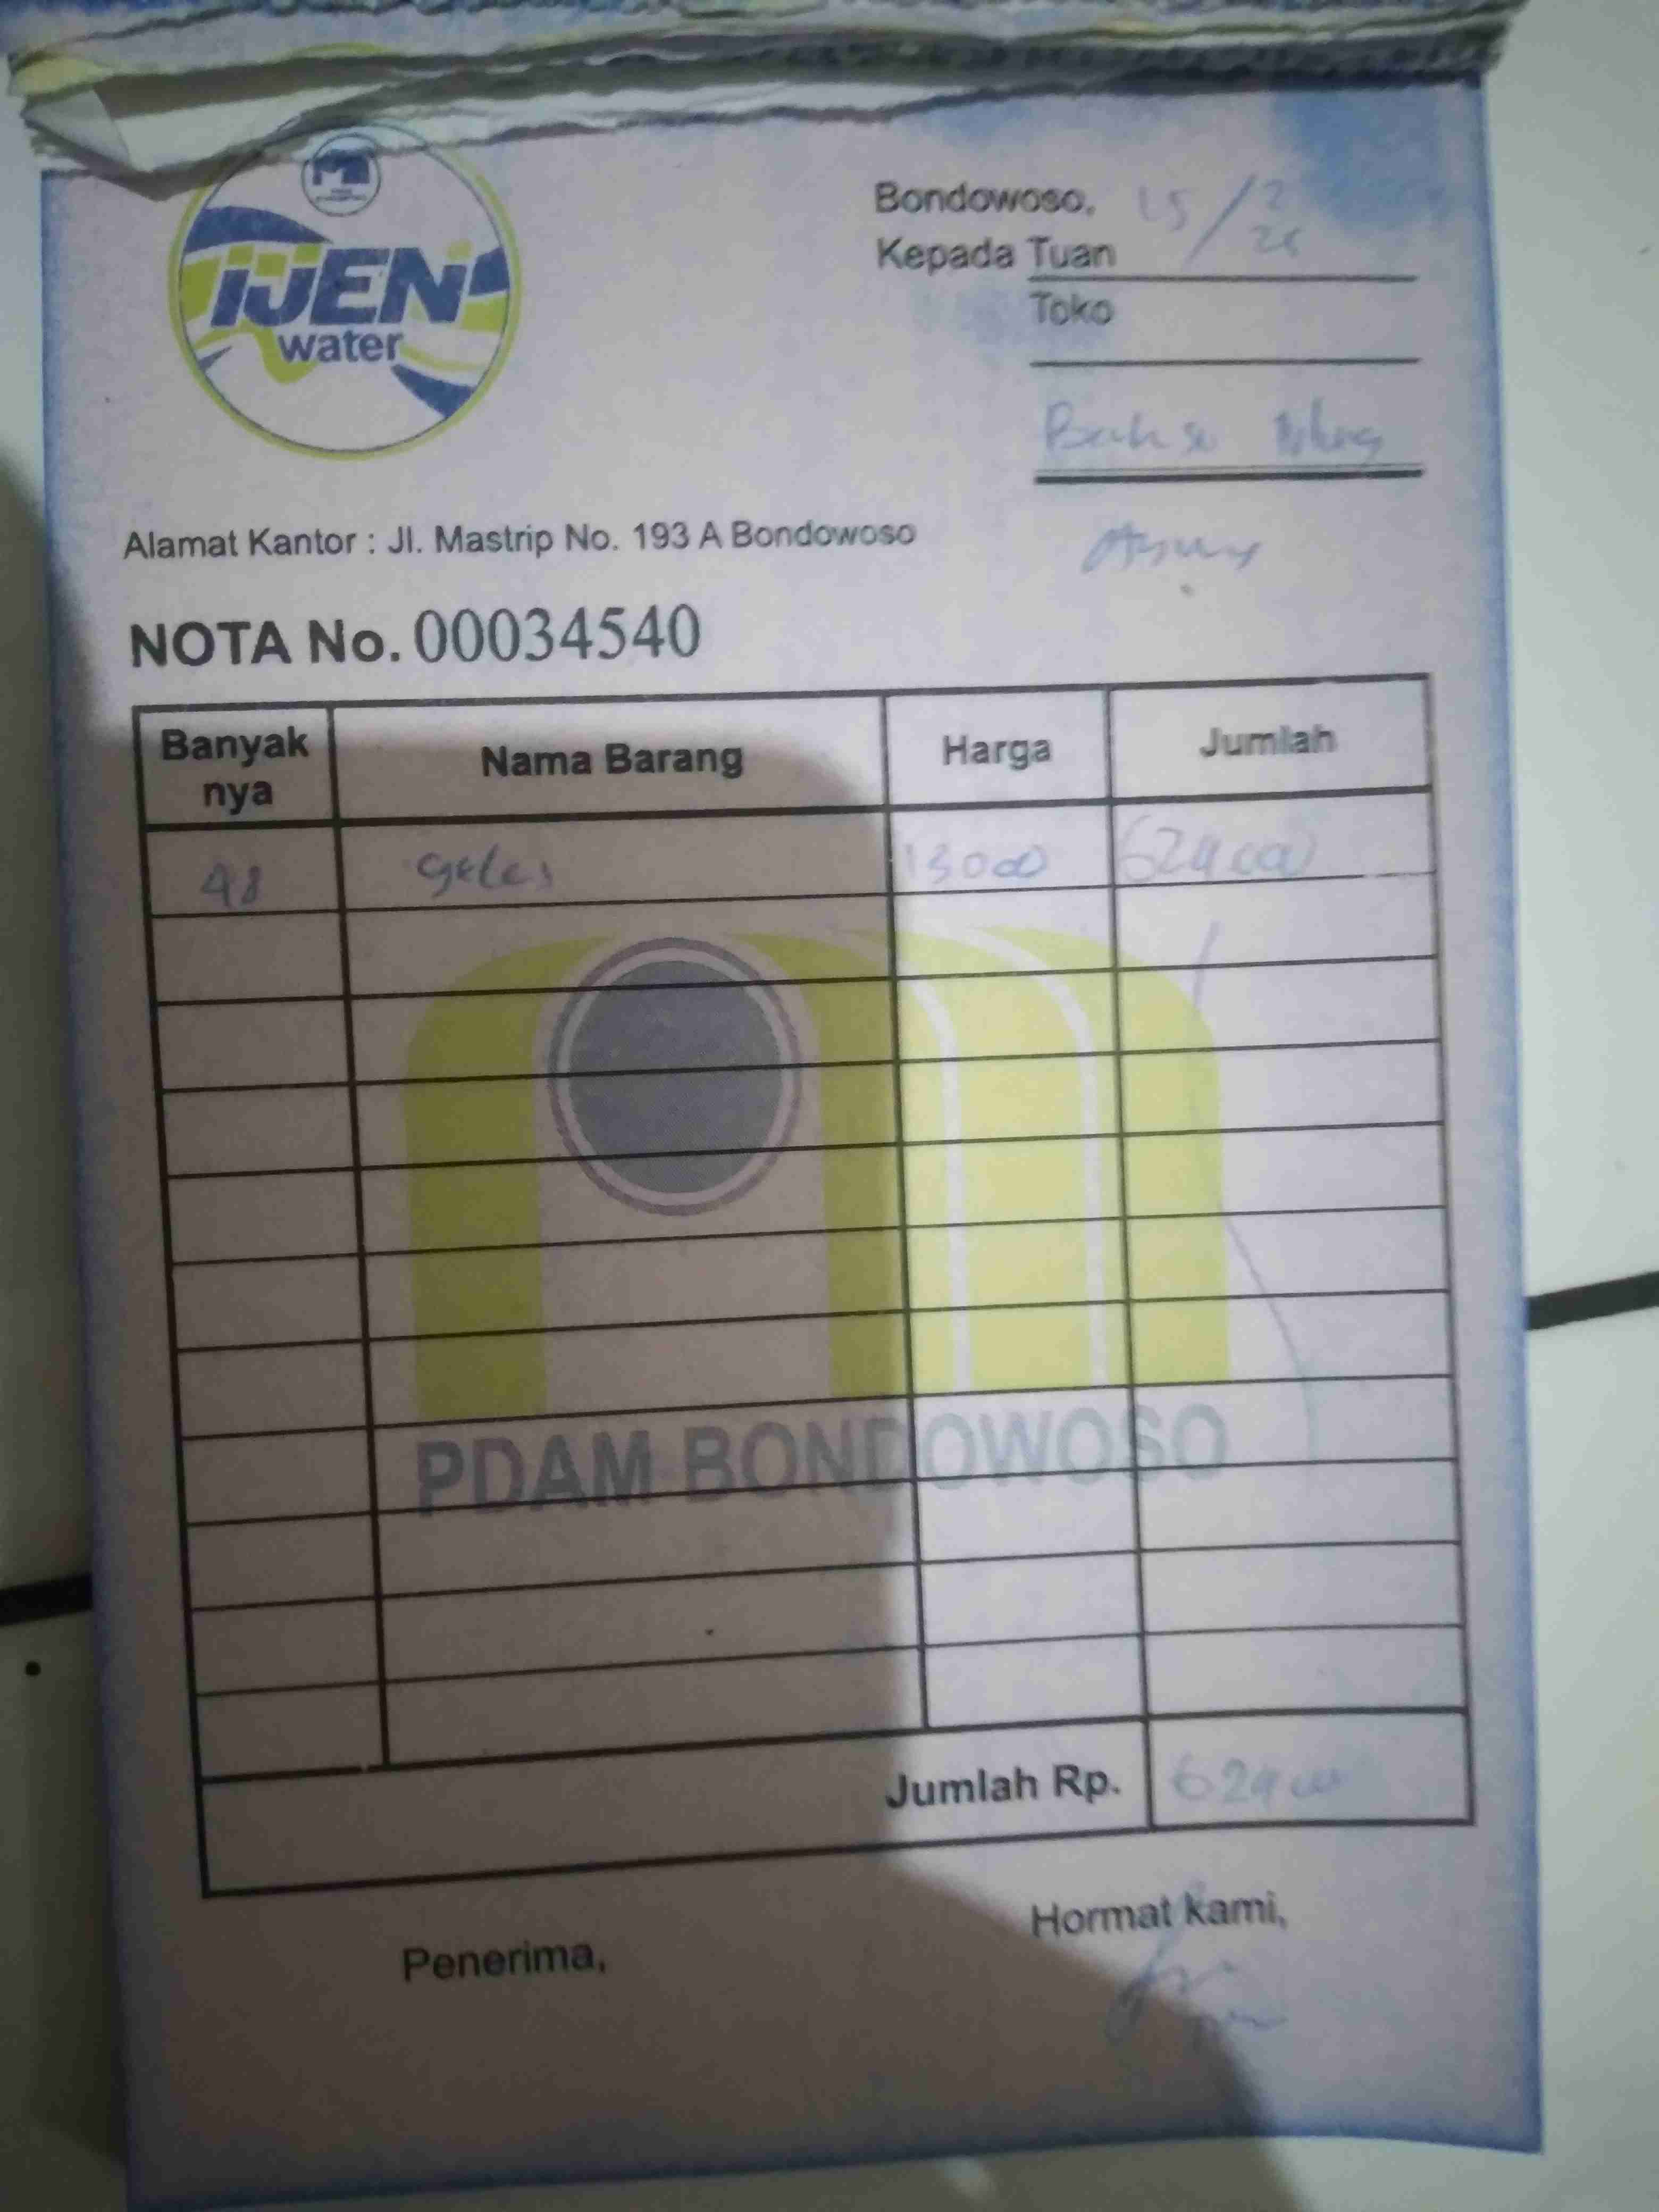 IJEN
water
Bondowoso, 15/2
Kepada Tuan
Toko
Alamat Kantor : Jl. Mastrip No. 193 A Bondowoso
NOTA No. 00034540
Banyak nya Nama Barang Harga Jumlah
48 gelas 13000 624000
PDAM BONDOWOSO
Jumlah Rp. 624000
Penerima, Hormat kami,